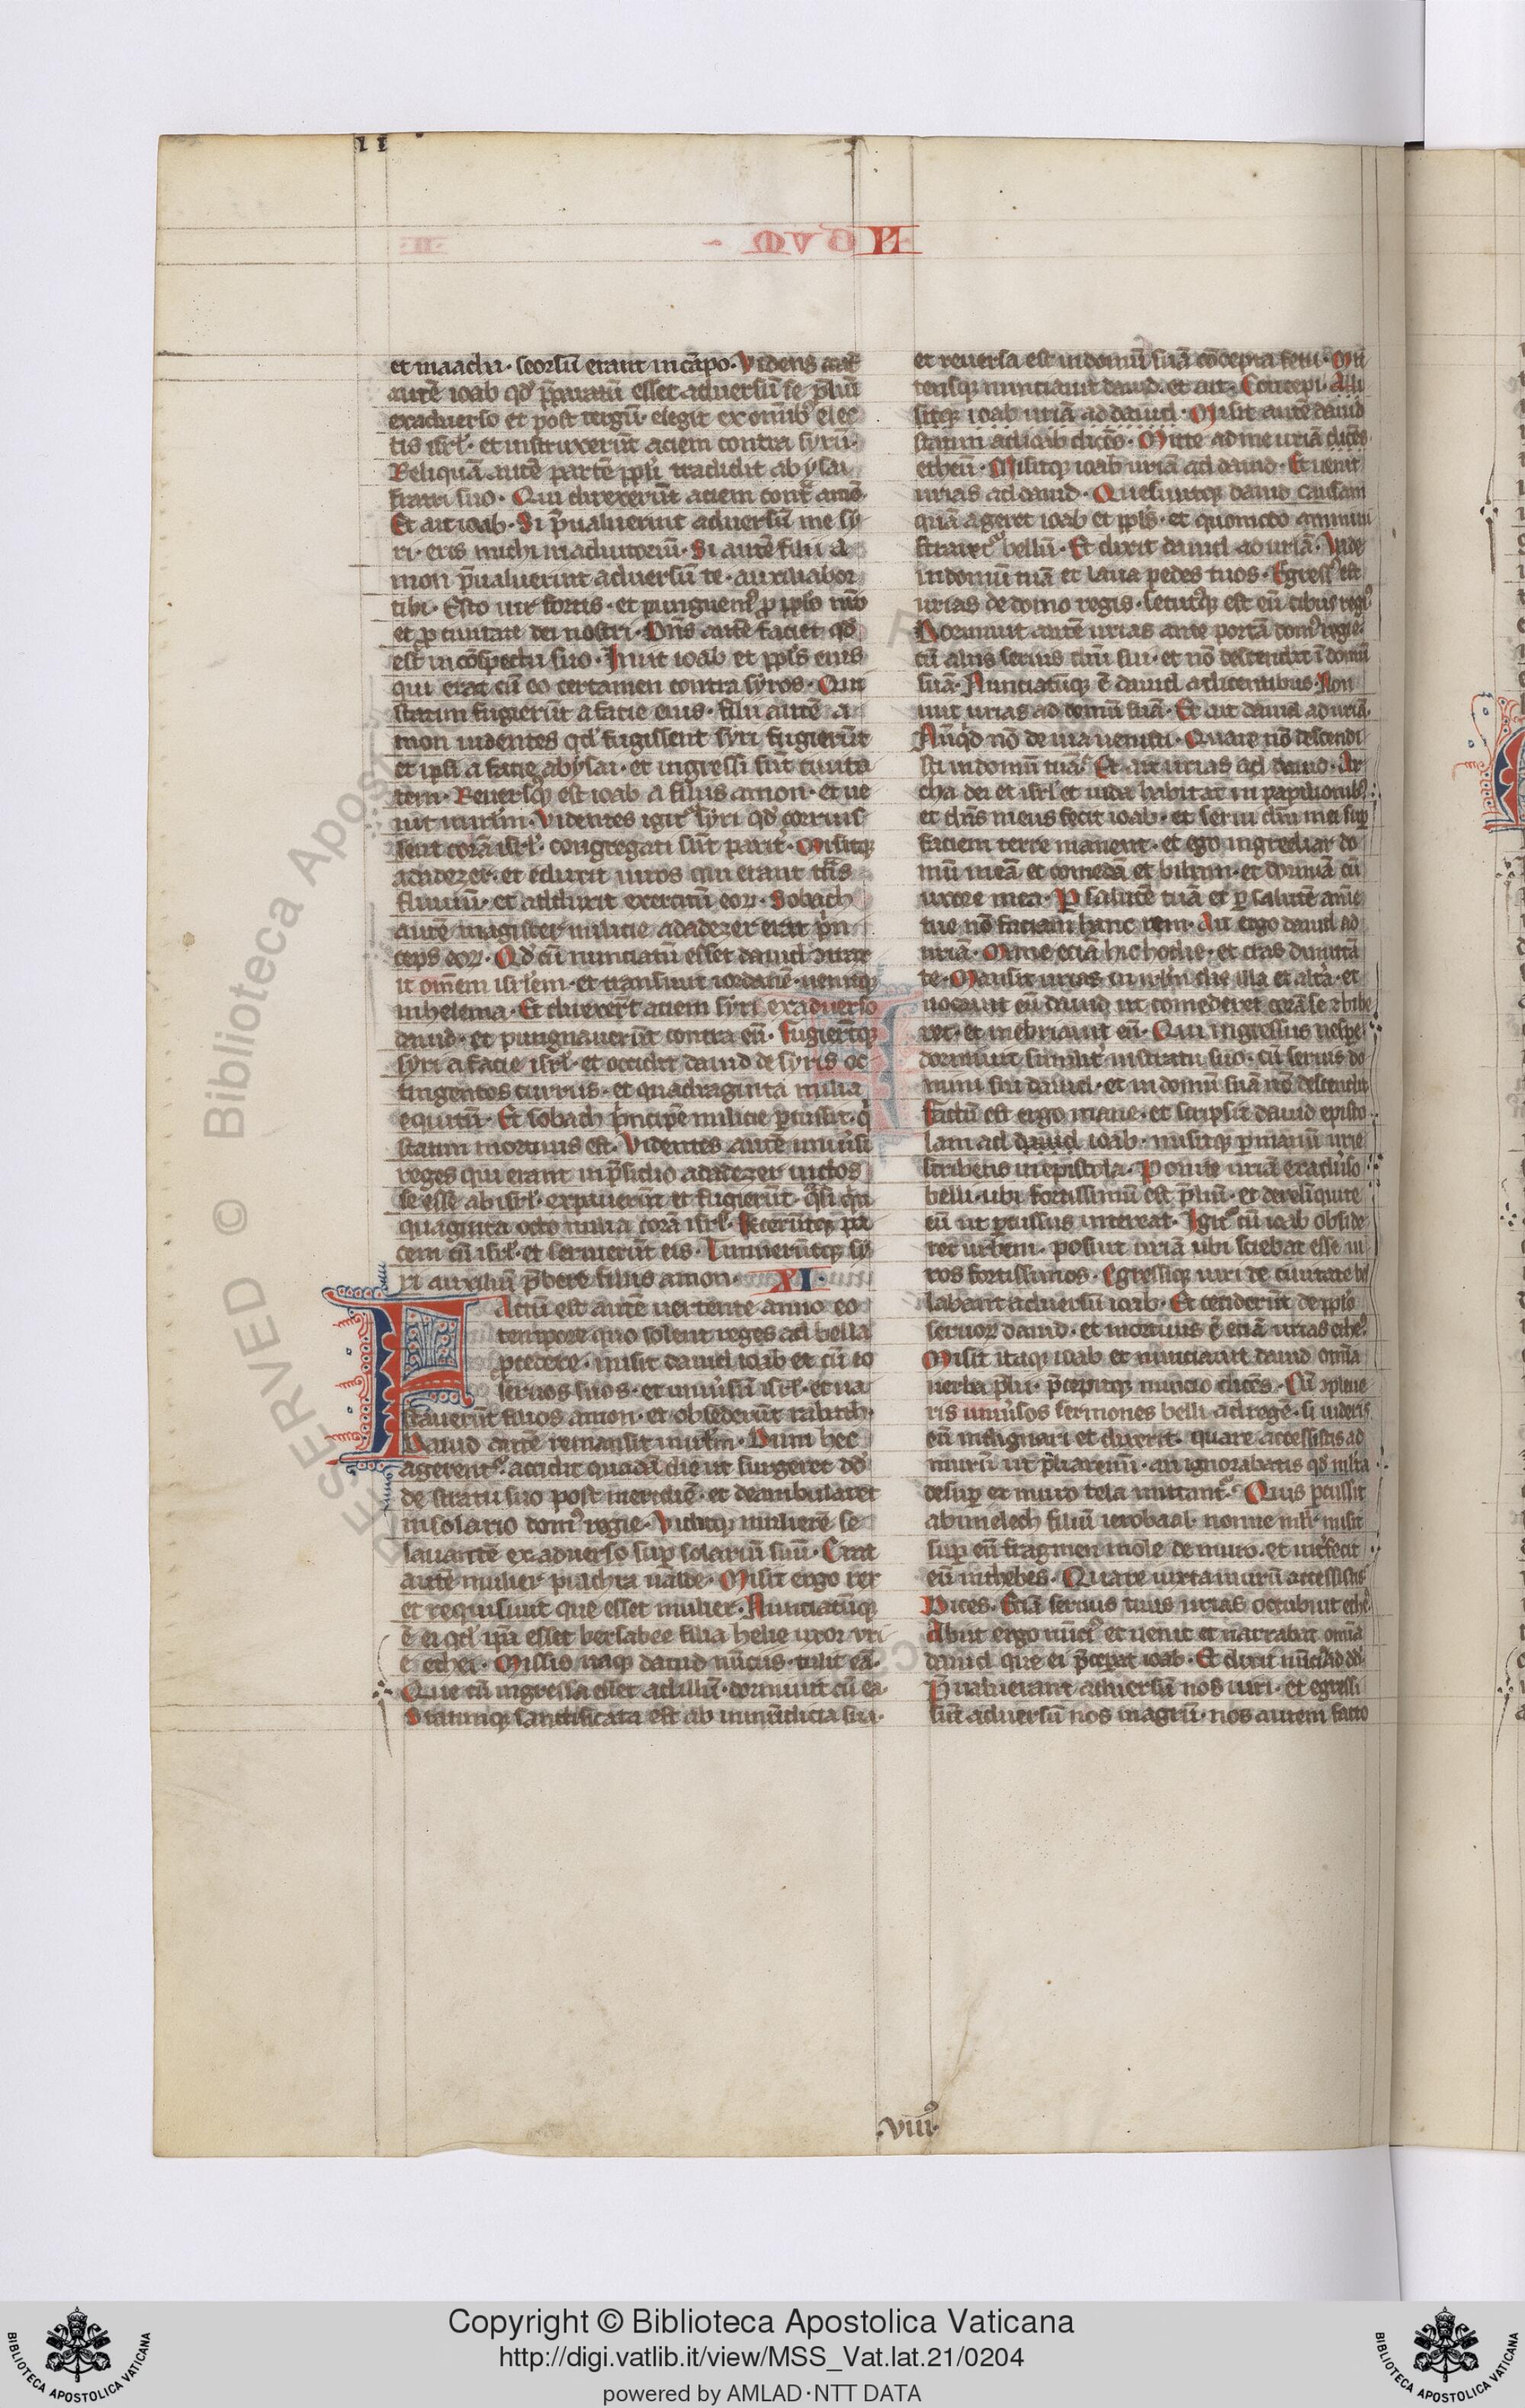 et maachi · seorsū erant in cāpo · Videns aut̄
autē ioab qd̓ p̄paratū esset aduersū se p̄liū
exaduerso et post tergū · elegit ex omnib; elec
tis isrl̓ · et instruxerūt aciem contra syrū ·
Reliquā autē partē ppl̓i tradidit abysai
fratri suo · Qui direxerūt aciem contͣ amō ·
Et ait ioab · Si p̄ualuerint aduersū me sy
ri · eris michi in adiutoriū · Si autē filii a
mon p̄ualuerint aduersū te · auxiliabor
tibi · Esto uir fortis · et pungnem᾿ p ppl̓o nr̄o
et p ciuitate dei nostri · Dn̄s autē faciet qd̓
est in cōspectu suo · Iniit ioab et ppl̓s eius
qui erat cū eo certamen contra syros · Qui
statim fugierūt a facie eius · filii autē a
mon uidentes qd̓ fugissent syri fugierūt
et ipsi a facie abysai · et ingressi sūt ciuita
tem · Reuersq; est ioab a filiis amon · et ue
nit in irl̄m · Videntes igit᾿ syri qd̓ corruis
sent corā isrl̓ · congregati sūt parit᾿ · Misitq;
adadezer · et eduxit uiros qui erant tn̄s
fluuiū · et adduxit exercitū eoꝝ · Sobach
autē magister milicie adadezer erat p̓n
ceps eoꝝ · Qd̓ cū nunciatū esset dauid ꝯtrax
it omēm isrl̓em · et transiuit iordanē · uenitq;
in helema · Et direxer̄t aciem syri exaduerso
dauid · et pungnauerūt contra eū · Fugier̄tq;
syri a facie isrl̓ · et occidit dauid de syris oc
tingentos currus · et quadraginta milia
equitū · Et sobach p̓ncipē milicie p̱cussit · q̓
statim mortuus est · Videntes autē uniuͥsi
reges qui erant in p̄sidio adadezer uictos
se esse ab isrl̓ · expauerūt et fugierūt · qͣsi qͥn
quaginta octo milia corā isrl̓ · Feceruntq; pa
cem cū isrl̓ · et seruierūt eis · Timuerūtq; sy
ri auxiliū p̄bere filiis amon · XI ·
Factū est autē uertente anno eo
tempore quo solent reges ad bella
p̱cedere · misit dauid ioab et cū eo
seruos suos · et uniuͥsū isrl̓ · et ua
stauerūt filios amon · et obsederūt rabath ·
Dauid autē remansit in irl̄m · Dum hec
agerent᾿ · accidit quadā die ut surgeret dd̓
de stratu suo post meridiē · et deambularet
in solario dom᾿ regie · Viditq; mulierē se
lauantē ex aduerso sup̱ solariū suū · Erat
autē mulier pulchra ualde · Misit ergo rex
et requisiuit que esset mulier · Nunciatūq;
ē ei qd̓ ip̄a esset bersabee filia helie uxor vri
e ethei · Missis itaq; dauid nūciis · tulit eā ·
Que cū ingressa esset ad illū · dormiuit cū ea ·
Statimq; sanctificata est ab inmūdicia sua ·
et reuersa est in domū suā cōcepto fetu · Mit
tensq; nunciauit dauid · et ait · Concepi · Mi
sitq; ioab uriā ad dauid · Misit autē dauid
statim ad ioab dicēs · Mitte ad me uriā dicēs
etheū · Misitq; ioab uriā ad dauid · Et uenit
urias ad dauid · Quesiuitq; dauid causam
quā ageret ioab et ppl̓s · et quomodo ammini
straret᾿ bellū · Et dixit dauid ad uriā · Vade
in domū tuā et laua pedes tuos · Egress᾿ est
urias de domo regis · secutq; est eū cibus regi᾿
Dormiuit autē urias ante portā dom᾿ regie ·
cū aliis seruis dn̄i sui · et nō descendit ī domū
suā · Nunciatūq; ē dauid a dicentibus · Non
iuit urias ad domū suā · Et ait dauid ad uriā ·
Nūqͥd nō de uia uenisti · Quare nō descendi
sti in domū tuā · Et ait urias ad dauid · Ar
cha dei et isrl̓ et iuda habitāt in papilionib; ·
et dn̄s meus fecit ioab · et serui dn̄i mei sup̱
faciem terre manent · et ego ingrediar do
mū meā et comedā et bibam · et dormiā cū
uxore mea · P̱ salutē tuā et p̱ salutē anīe
tue nō faciam hanc rem · Ait ergo dauid ad
uriā · Mane eciā hic hodie · et cras dimittā
te · Mansit urias in irl̄m die illa et altͣa · et
uocauit eū dauid ut comederet corā se ⁊ bibe
ret · et inebriauit eū · Qui ingressus uesp̱e
dormiuit simul in stratu suo · cū seruis do
mini sui dauid · et in domū suā nō descendit
Factū est ergo mane · et scripsit dauid episto
lam ad dauid ioab · misitq; p̱ manū urie
scribens in epistola · Ponite uriā exaduͥso
belli · ubi fortissimū est p̄liū · et derelīquite
eū ut p̱cussus intereat · Igit᾿ cū ioab obside
ret urbem · posuit uriā ubi sciebat esse ui
ros fortissimos · Egressiq; uiri de ciuitate bel
labant aduersū ioab · Et ceciderūt de ppl̓o
seruoꝝ dauid · et mortuus ē eciā urias ethe᾿
Misit itaq; ioab et nunciauit dauid omīa
uerba p̄lii · p̄cepitq; nuncio dicēs · Cū ꝯpleue
ris uniuͥsos sermones belli ad regē · si uideris
eū indignari et dixerit · quare accessistis ad
murū ut p̄liaremī · an ignorabatis qd̓ mlͭa
desup̱ ex muro tela mittant᾿ · Quis p̱cussit
abimelech filiū ierobaal · nonne mlr̄ misit
sup̱ eū fragmen mole de muro · et int̓fecit
eū in thebes · Quare iuxta murū accessistis
Dices · Eciā seruus tuus urias occubuit ethe᾿
Abiit ergo nūci᾿ et uenit et narrabat omīa
dauid que ei p̄cep̱at ioab · Et dixit nūci᾿ ad dd̓
P̄ualuerunt aduersū nos uiri · et egressi
sūt aduersū nos in agrū · nos autem facto
· viii᾿ ·
RESERVED © Biblioteca Apost
Copyright © Biblioteca Apostolica Vaticana
http://digi.vatlib.it/view/MSS_Vat.lat.21/0204
powered by AMLAD·NTT DATA
BIBLIOTECA APOSTOLICA VATICANA
BIBLIOTECA APOSTOLICA VATICANA